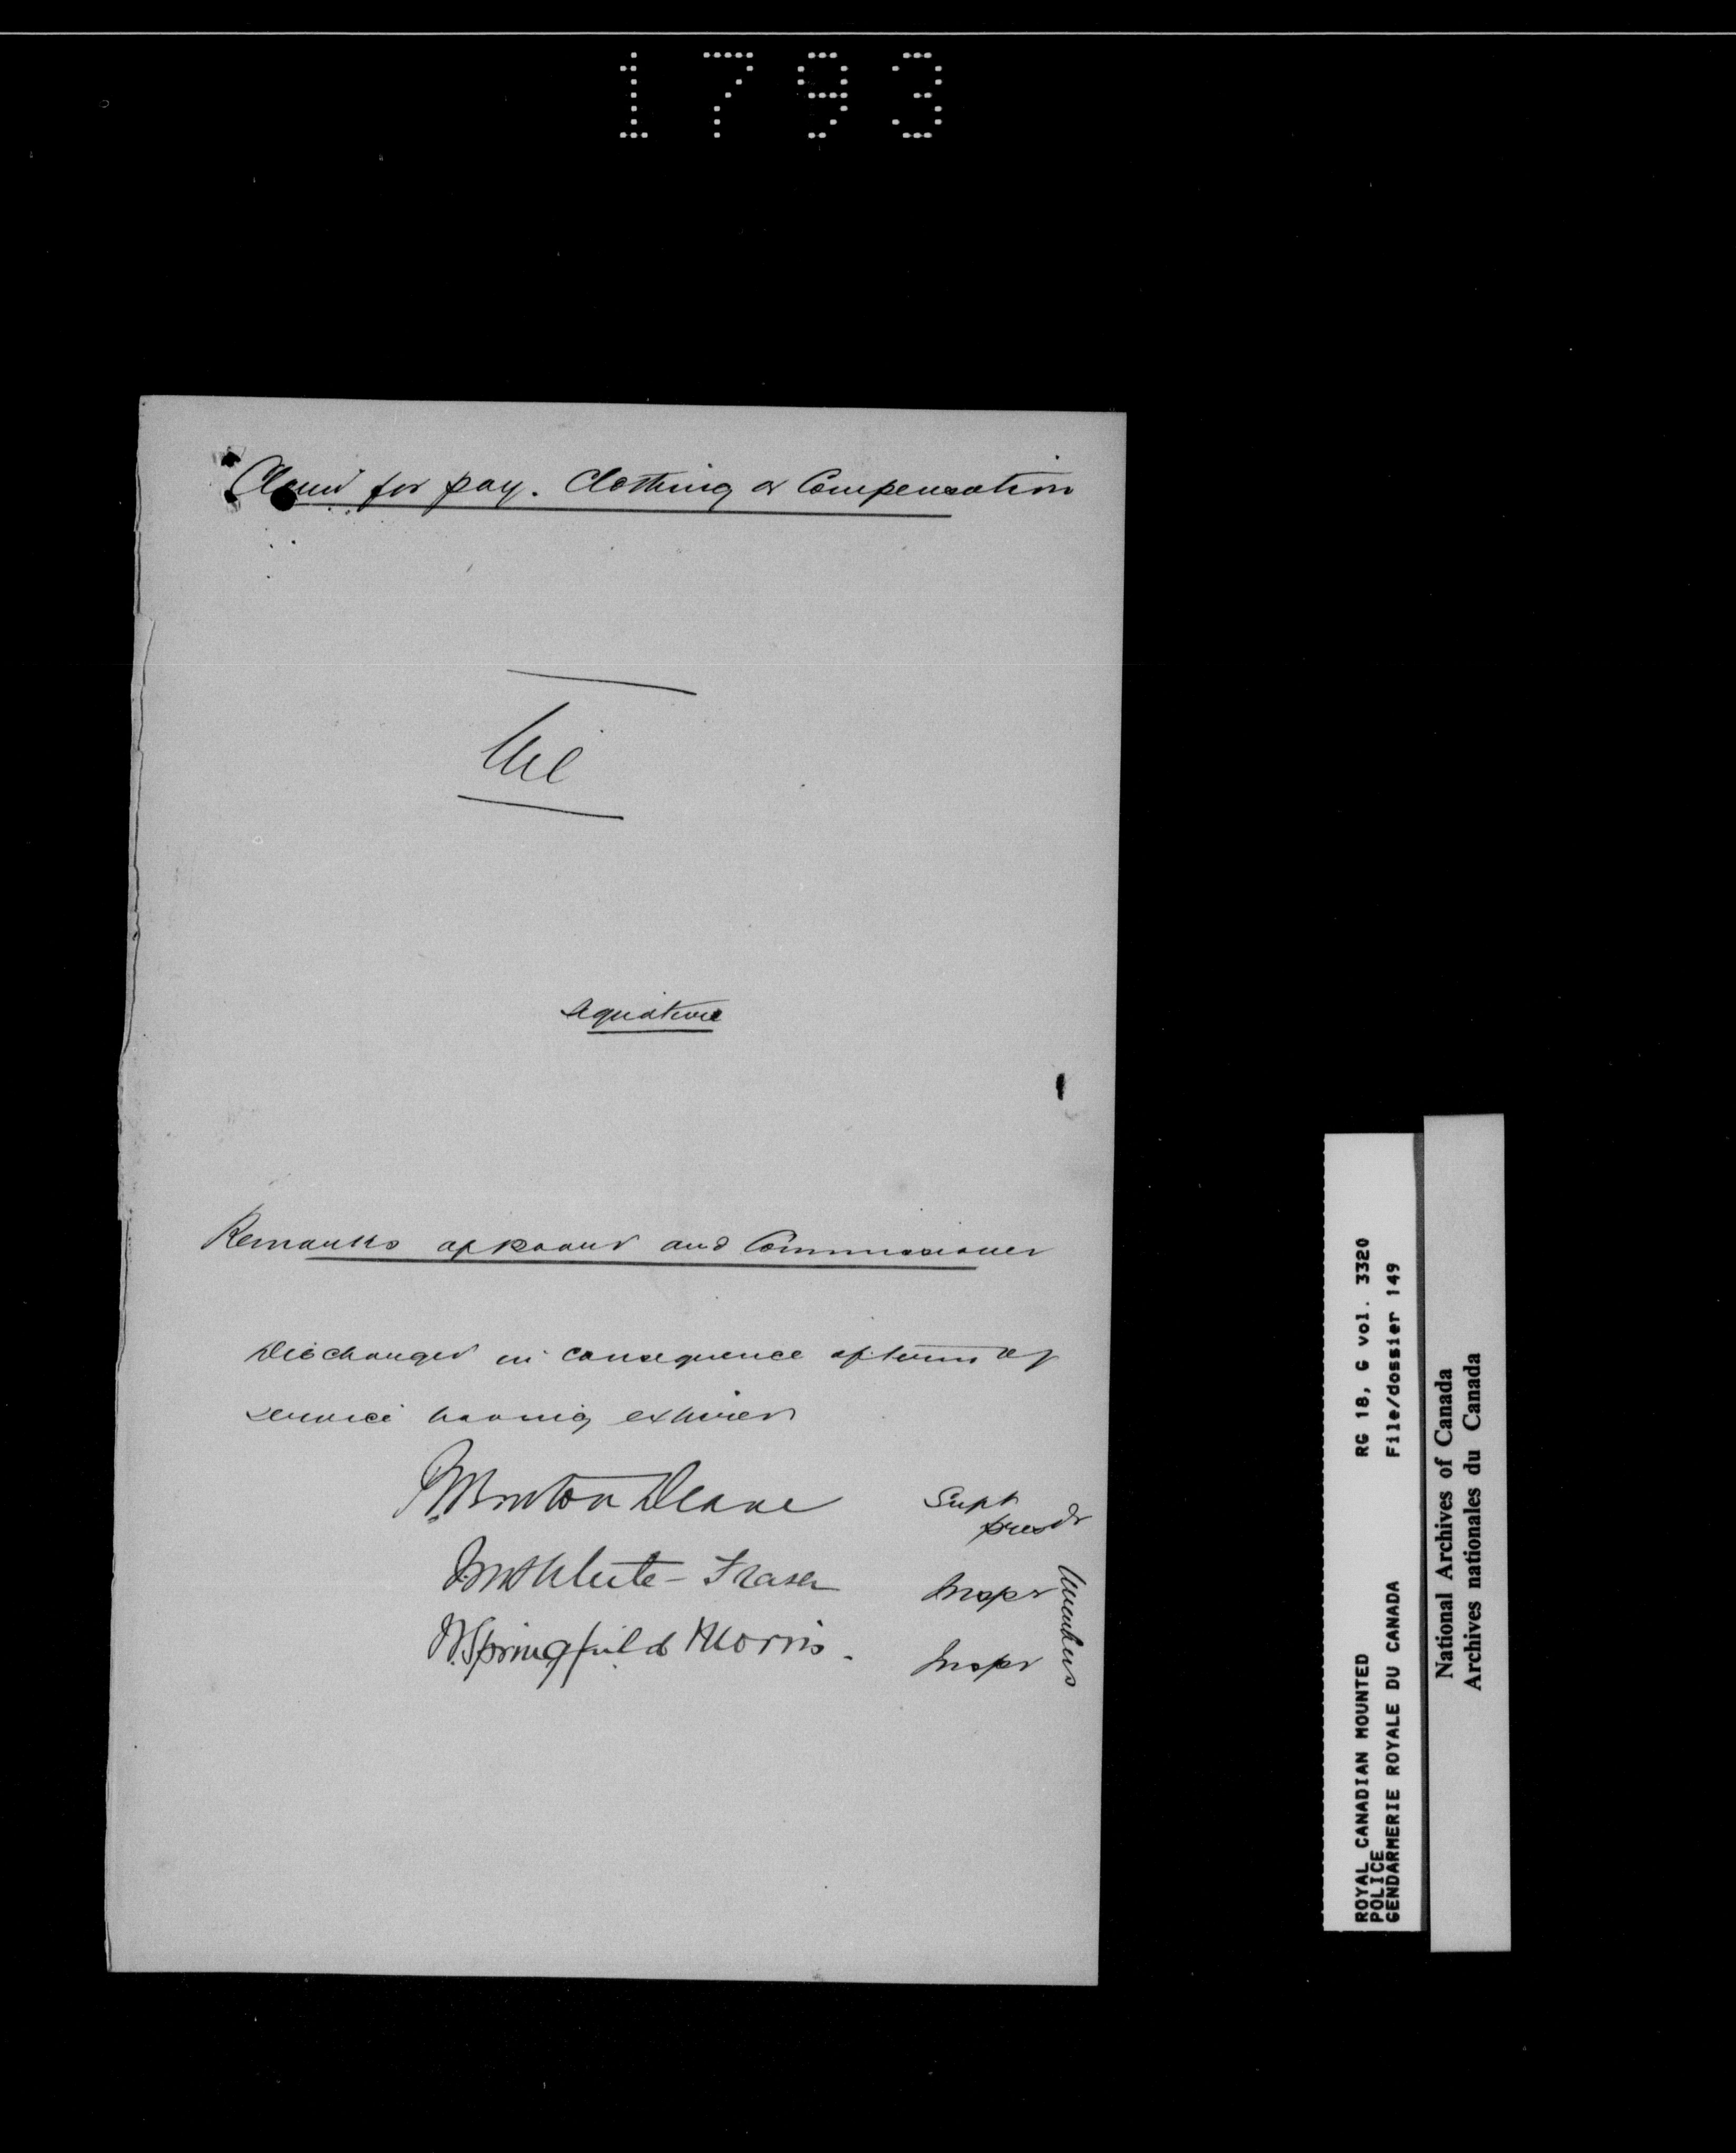 1793
Claim for pay. Clothing or Compensation
Nil
Signature
Remarks of Board and Commissioner
Discharged in consequence of term of
service having expired
R. Burton Deane Supt
Presdt
M H White-Fraser Inspr
W. Springfield Morris. Inspr
Members
ROYAL CANADIAN MOUNTED RG 18, G vol. 3320
POLICE
GENDARMERIE ROYALE DU CANADA File/dossier 149
National Archives of Canada
Archives nationales du Canada